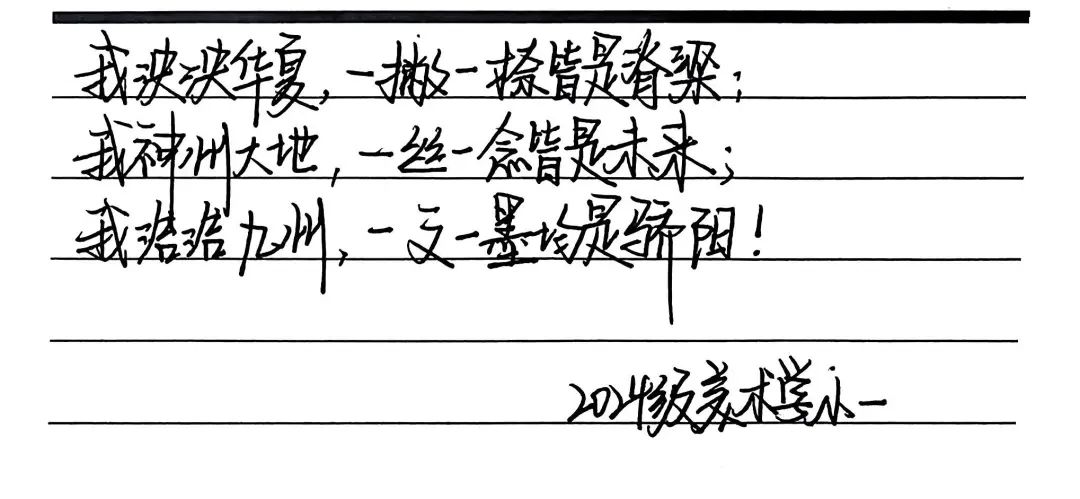 我泱泱华夏,一撇一捺皆是脊梁;
我神州大地,一丝一念皆是未来;
我浩浩九州,一文一墨均是骄阳!
2024级美术学小一